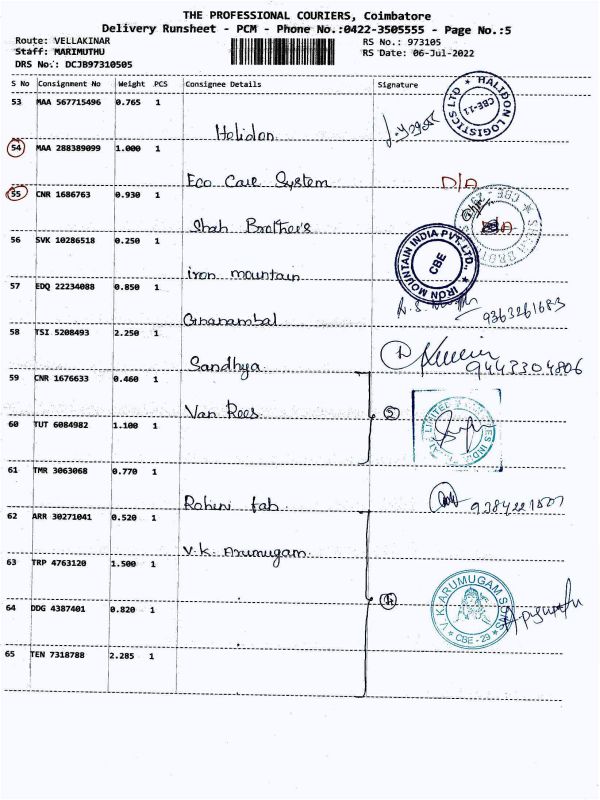 THE PROFESSIONAL COURIERS, Coimbatore
Delivery Runsheet - PCM - Phone No.:0422-3505555 - Page No.:5
Route: VELLAKINAR RS No.: 973105
Staff: MARIMUTHU RS Date: 06-Jul-2022
DRS No.: DCJB97310505
S No Consignment No Weight PCS Consignee Details Signature
53 MAA 567715496 0.765 1 Halidon
HALIDON LOGISTICS LTD * CBE-11
54 MAA 288389099 1.000 1 Eco Care System D/A
55 CNR 1686763 0.930 1 Shah Brothers
56 SVK 10286518 0.250 1 iron mountain
IRON MOUNTAIN INDIA PVT. LTD., * CBE
57 EDQ 22234088 0.850 1 Gnanambal 9363261683
58 TSI 5208493 2.250 1 Sandhya 9443304806
59 CNR 1676633 0.460 1 Van Rees
60 TUT 6084982 1.100 1
61 TMR 3063068 0.770 1 Rohini fab
62 ARR 30271041 0.520 1 V.K. Arumugam
63 TRP 4763120 1.500 1
V.K. ARUMUGAM SONS * CBE-29 *
64 DDG 4387401 0.820 1
65 TEN 7318788 2.285 1